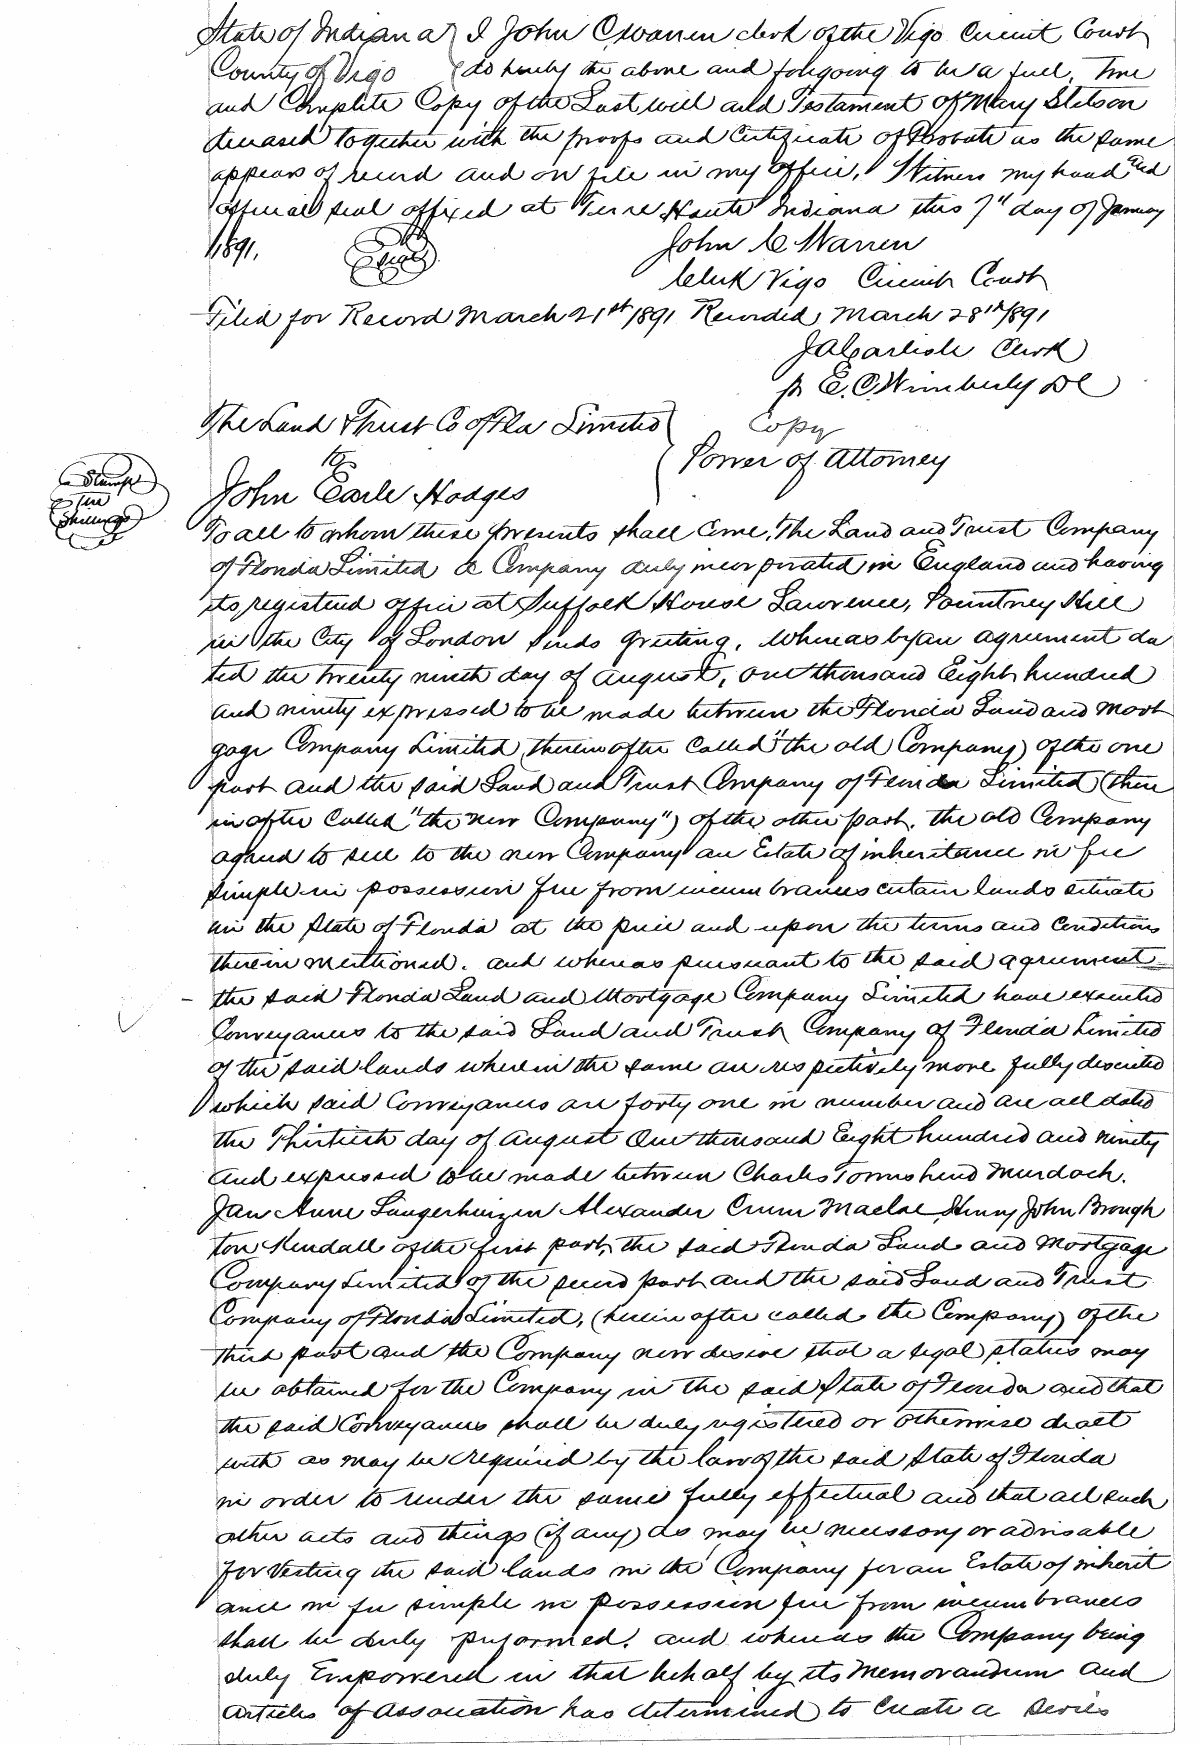 State of Indiana } I John C Warren clerk of the Vigo Circuit Court
County of Vigo } do hereby the above and foregoing to be a full, true
and Complete Copy of the Last will and Testament of Mary Stetson
deceased together with the proofs and Certificate of Probate as the same
appears of record and on file in my office. Witness my hand and
official seal affixed at Terre Haute Indiana this 7" day of January
1891.
Seal
John C Warren
Clerk Vigo Circuit Court
Filed for Record March 21st 1891 Recorded March 28th 1891
J A Carlisle Clerk
pr E. C. Wimberly DC
The Land & Trust Co of Fla Limited
to
John Earle Hodges
Copy
Power of Attorney
Stamp
Ten
Shillings
To all to whom these presents shall come, The Land and Trust Company
of Florida Limited a Company duly incorporated in England and having
its registered office at Suffolk House Lawrence, Pountney Hill
in the City of London Sends Greeting. Whereas by an agreement da
ted the twenty ninth day of August, One thousand Eight hundred
and ninety expressed to be made between the Florida Land and Mort
gage Company Limited (therein after called "the old Company) of the one
part and the said Land and Trust Company of Florida Limited (there
in after called "the new Company") of the other part. the old Company
agreed to sell to the new Company an Estate of inheritance in fee
simple in possession free from incumbrances certain lands situate
in the State of Florida at the price and upon the terms and conditions
therein mentioned. and whereas pursuant to the said agreement
the said Florida Land and Mortgage Company Limited have executed
Conveyances to the said Land and Trust Company of Florida Limited
of the said lands wherein the same are respectively more fully described
which said Conveyances are forty one in number and are all dated
the Thirtieth day of August One thousand Eight hundred and ninety
and expressed to be made between Charles Townshend Murdoch.
Jan Anne Langerhuizen Alexander Crum Maclae, Henry John Brough
ton Kendall of the first part, the said Florida Land and Mortgage
Company Limited of the second part and the said Land and Trust
Company of Florida Limited, (herein after called the Company) of the
third part and the Company now desire that a legal status may
be obtained for the Company in the said State of Florida and that
the said Conveyances shall be duly registered or otherwise dealt
with as may be required by the law of the said State of Florida
in order to render the same fully effectual and that all such
other acts and things (if any) as may be necessary or advisable
for vesting the said lands in the Company for an Estate of inherit
ance in fee simple in possession free from incumbrances
shall be duly performed. and whereas the Company being
duly Empowered in that behalf by its Memorandum and
Articles of Association has determined to create a series